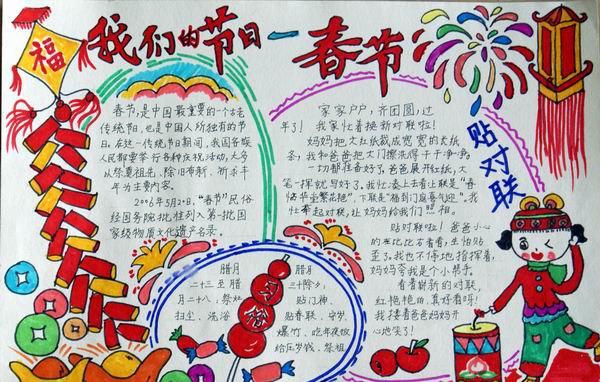 福
我们的节日一春节
春节,是中国最重要的一个古老
传统节日,也是中国人所独有的节
日。在这一传统节日期间,我国各族
人民都要举行各种庆祝活动,大多
以祭祀祖先、除旧布新、祈求丰
年为主要内容。
2006年5月20日,"春节"民俗
经国务院批准列入第一批国
家级物质文化遗产名录。
家家户户,齐团圆,过
年了!我家忙着换新对联啦!
妈妈把大红纸裁成宽宽的长纸
条,我和爸爸把大门擦洗得干干净净。
一切都准备好了,爸爸展开红纸,大
笔一挥就写好了。我忙凑上去看
贴对联
贴对联啦!爸爸小心
的在比比右看看,生怕贴
歪了。我也不停地指挥着,
妈妈夸我是个小帮手。
看着崭新的对联,
红艳艳的,真好看呀!
我搂着爸爸妈妈开
心地笑了!
腊月
二十三至腊
月二十八:祭灶
扫尘、洗浴
习俗
腊月
三十除夕:
贴门神、
贴春联、守岁、
爆竹、吃年夜饭
给压岁钱、祭祖